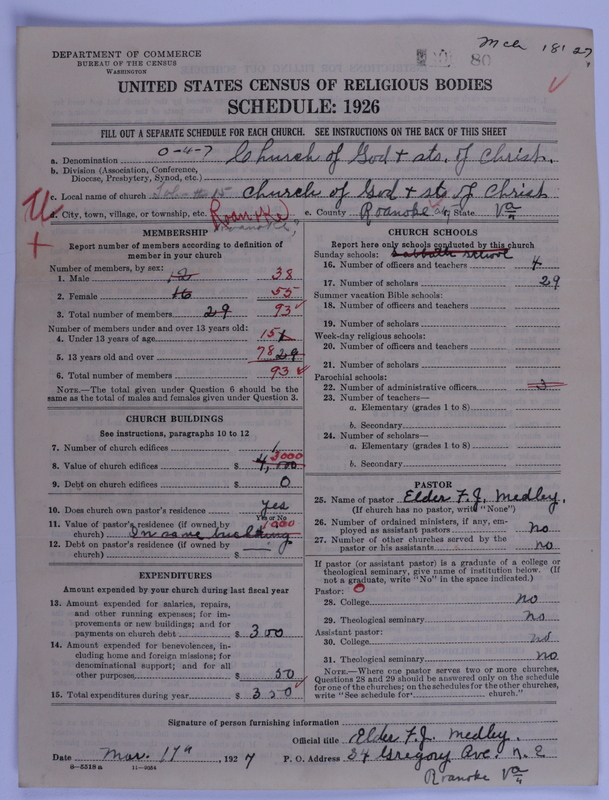 Mch 18 1927
DEPARTMENT OF COMMERCE
BUREAU OF THE CENSUS
WASHINGTON
80
UNITED STATES CENSUS OF RELIGIOUS BODIES
SCHEDULE: 1926
FILL OUT A SEPARATE SCHEDULE FOR EACH CHURCH. SEE INSTRUCTIONS ON THE BACK OF THIS SHEET
0-4-7
a. Denomination Church of God + sts. of Christ.
b. Division (Association, Conference,
Diocese, Presbytery, Synod, etc.)
c. Local name of church Church of God + sts of Christ
d. City, town, village, or township, etc. Roanoke e. County Roanoke State Va
MEMBERSHIP
Report number of members according to definition of
member in your church
Number of members, by sex:
1. Male 38
2. Female 16 55
3. Total number of members 29 93
Number of members under and over 13 years old:
4. Under 13 years of age 15
5. 13 years old and over 78 29
6. Total number of members 93
NOTE.—The total given under Question 6 should be
the same as the total of males and females given under Question 3.
CHURCH BUILDINGS
See instructions, paragraphs 10 to 12
7. Number of church edifices 1
3000
8. Value of church edifices $
9. Debt on church edifices $ 0
10. Does church own pastor's residence yes
Yes or No
11. Value of pastor's residence (if owned by
church) In same building 1000
12. Debt on pastor's residence (if owned by
church) $
EXPENDITURES
Amount expended by your church during last fiscal year
13. Amount expended for salaries, repairs,
and other running expenses; for im-
provements or new buildings; and for
payments on church debt $ 300
14. Amount expended for benevolences, in-
cluding home and foreign missions; for
denominational support; and for all
other purposes $ 50
15. Total expenditures during year $ 350
CHURCH SCHOOLS
Report here only schools conducted by this church
Sunday schools: Sabbath school
16. Number of officers and teachers 4
17. Number of scholars 29
Summer vacation Bible schools:
18. Number of officers and teachers
19. Number of scholars
Week-day religious schools:
20. Number of officers and teachers
21. Number of scholars
Parochial schools:
22. Number of administrative officers 3
23. Number of teachers—
a. Elementary (grades 1 to 8)
b. Secondary
24. Number of scholars—
a. Elementary (grades 1 to 8)
b. Secondary
PASTOR
25. Name of pastor Elder F. J. Medley.
(If church has no pastor, write "None")
26. Number of ordained ministers, if any, em-
ployed as assistant pastors no
27. Number of other churches served by the
pastor or his assistants no
If pastor (or assistant pastor) is a graduate of a college or
theological seminary, give name of institution below. (If
not a graduate, write "No" in the space indicated.)
Pastor: 0
28. College no
29. Theological seminary no
Assistant pastor:
30. College no
31. Theological seminary no
NOTE.—Where one pastor serves two or more churches,
Questions 28 and 29 should be answered only on the schedule
for one of the churches; on the schedules for the other churches,
write "See schedule for church."
Signature of person furnishing information
Official title Elder F. J. Medley.
Date Mar. 17th, 1927 P. O. Address 34 Gregory Ave. N. E
8-5518 a 11-9034 Roanoke Va